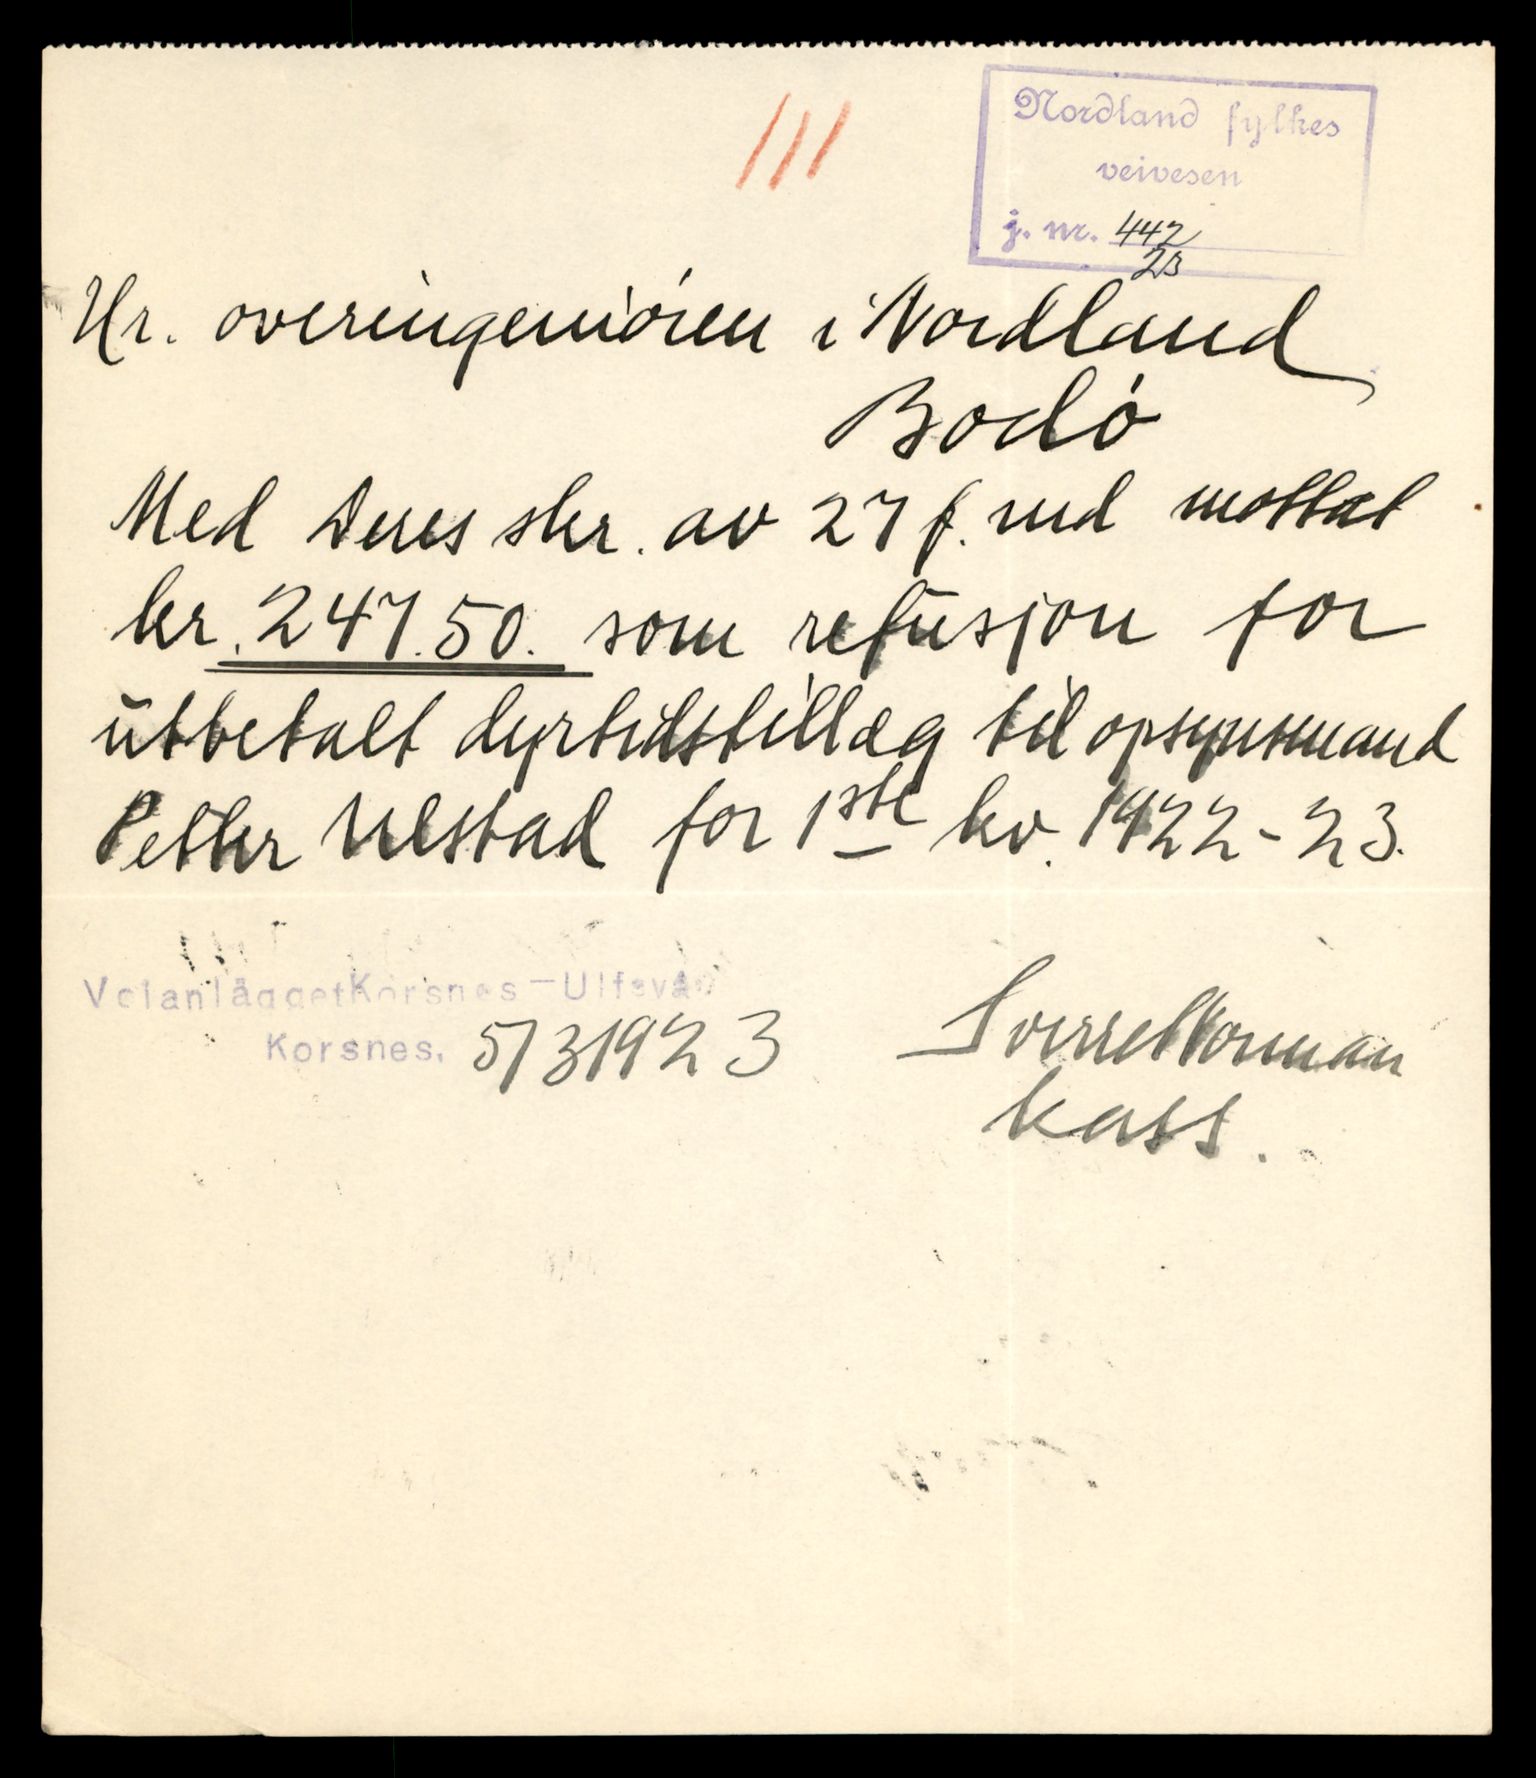 III
Nordland fylkes
veivesen
j. nr. 442
23
Hr. overingeniören i Nordland
Bodö
Med Deres skr. av 27 f. md mottat
kr. 247.50. som refusjon for
utbetalt dyrtidstillæg til opsynsmand
Petter Ulstad for 1ste kv. 1922-23.
Veianlägget Korsnes-Ulfsvåg
Korsnes. 5/3 1923
Sverre Norman
kass.